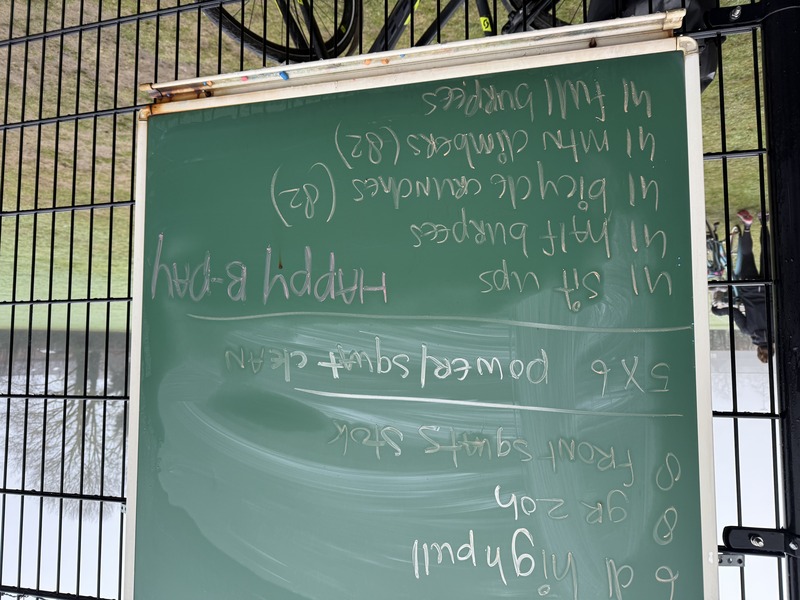 6 d high pull
8 gR 2oh
8 FRONT SQUATS STOK
5 X 6 POWER/SQUAT CLEAN
41 SiT ups HAPPY B-DAY
41 half burpees
41 bicycle crunches (82)
41 mtn climbers (82)
41 full burpees